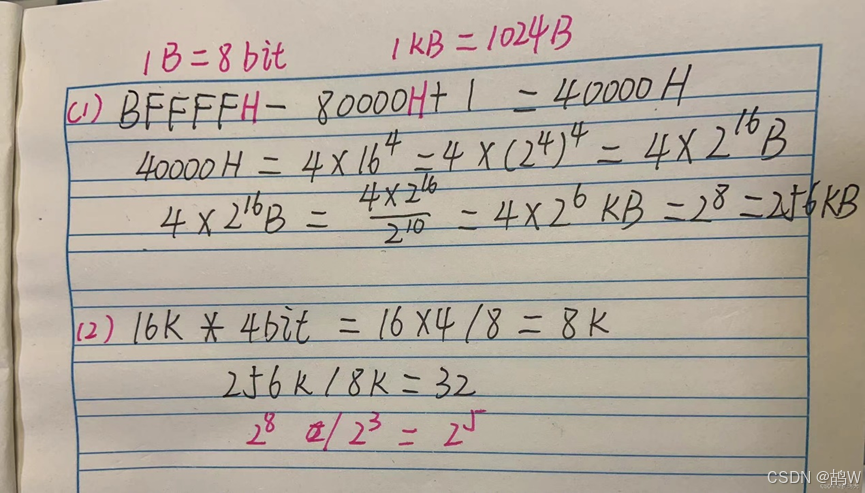 1B=8bit 1KB=1024B
(1) BFFFFH- 80000H+1 =40000H
40000H = 4×16⁴=4×(2⁴)⁴= 4×2¹⁶B
4×2¹⁶B = 4×2¹⁶/2¹⁰ = 4×2⁶ KB =2⁸=256KB
(2) 16K * 4bit = 16×4/8 = 8K
256K/8K=32
2⁸ /2³ = 2⁵
CSDN @鸪W